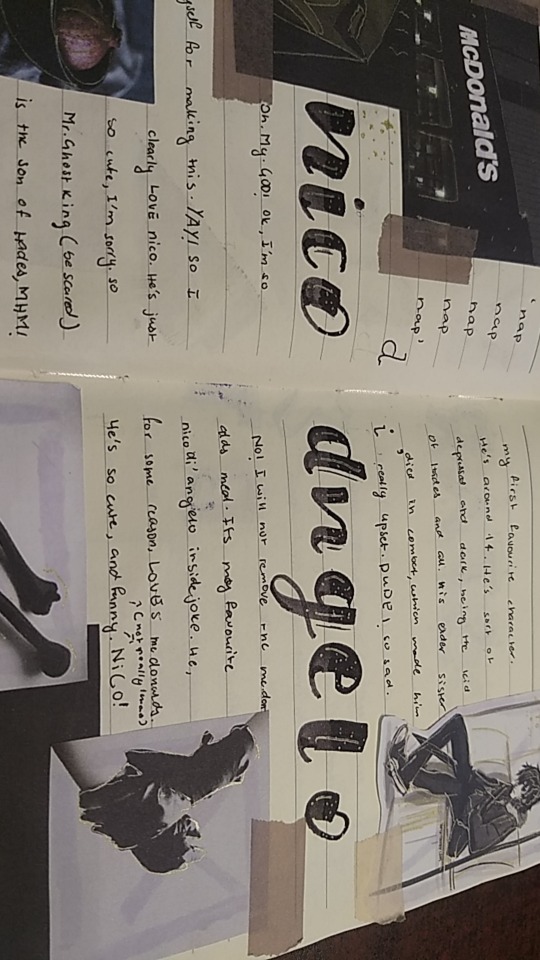 McDonald's
nap
nap
nap
nap
nap,
nico
d
i'
angelo
Oh. My. GOD! Ok, I'm so
for making this. YAY! So I
clearly LOVE nico. He's just
so cute, I'm sorry. so
Mr. Ghost King (be scared)
is the son of Hades, MHM!
my first favourite character.
He's around 14. He's sort of
depressed and dark, being the kid
of hades and all. his elder sister
died in combat, which made him
really upset. DUDE! so sad.
No! I will not remove the
meal. Its my favourite
nico di' angelo inside joke. He,
for some reason, LOVES mcdonalds.
(not really lmao)
He's so cute, and funny. NICO!